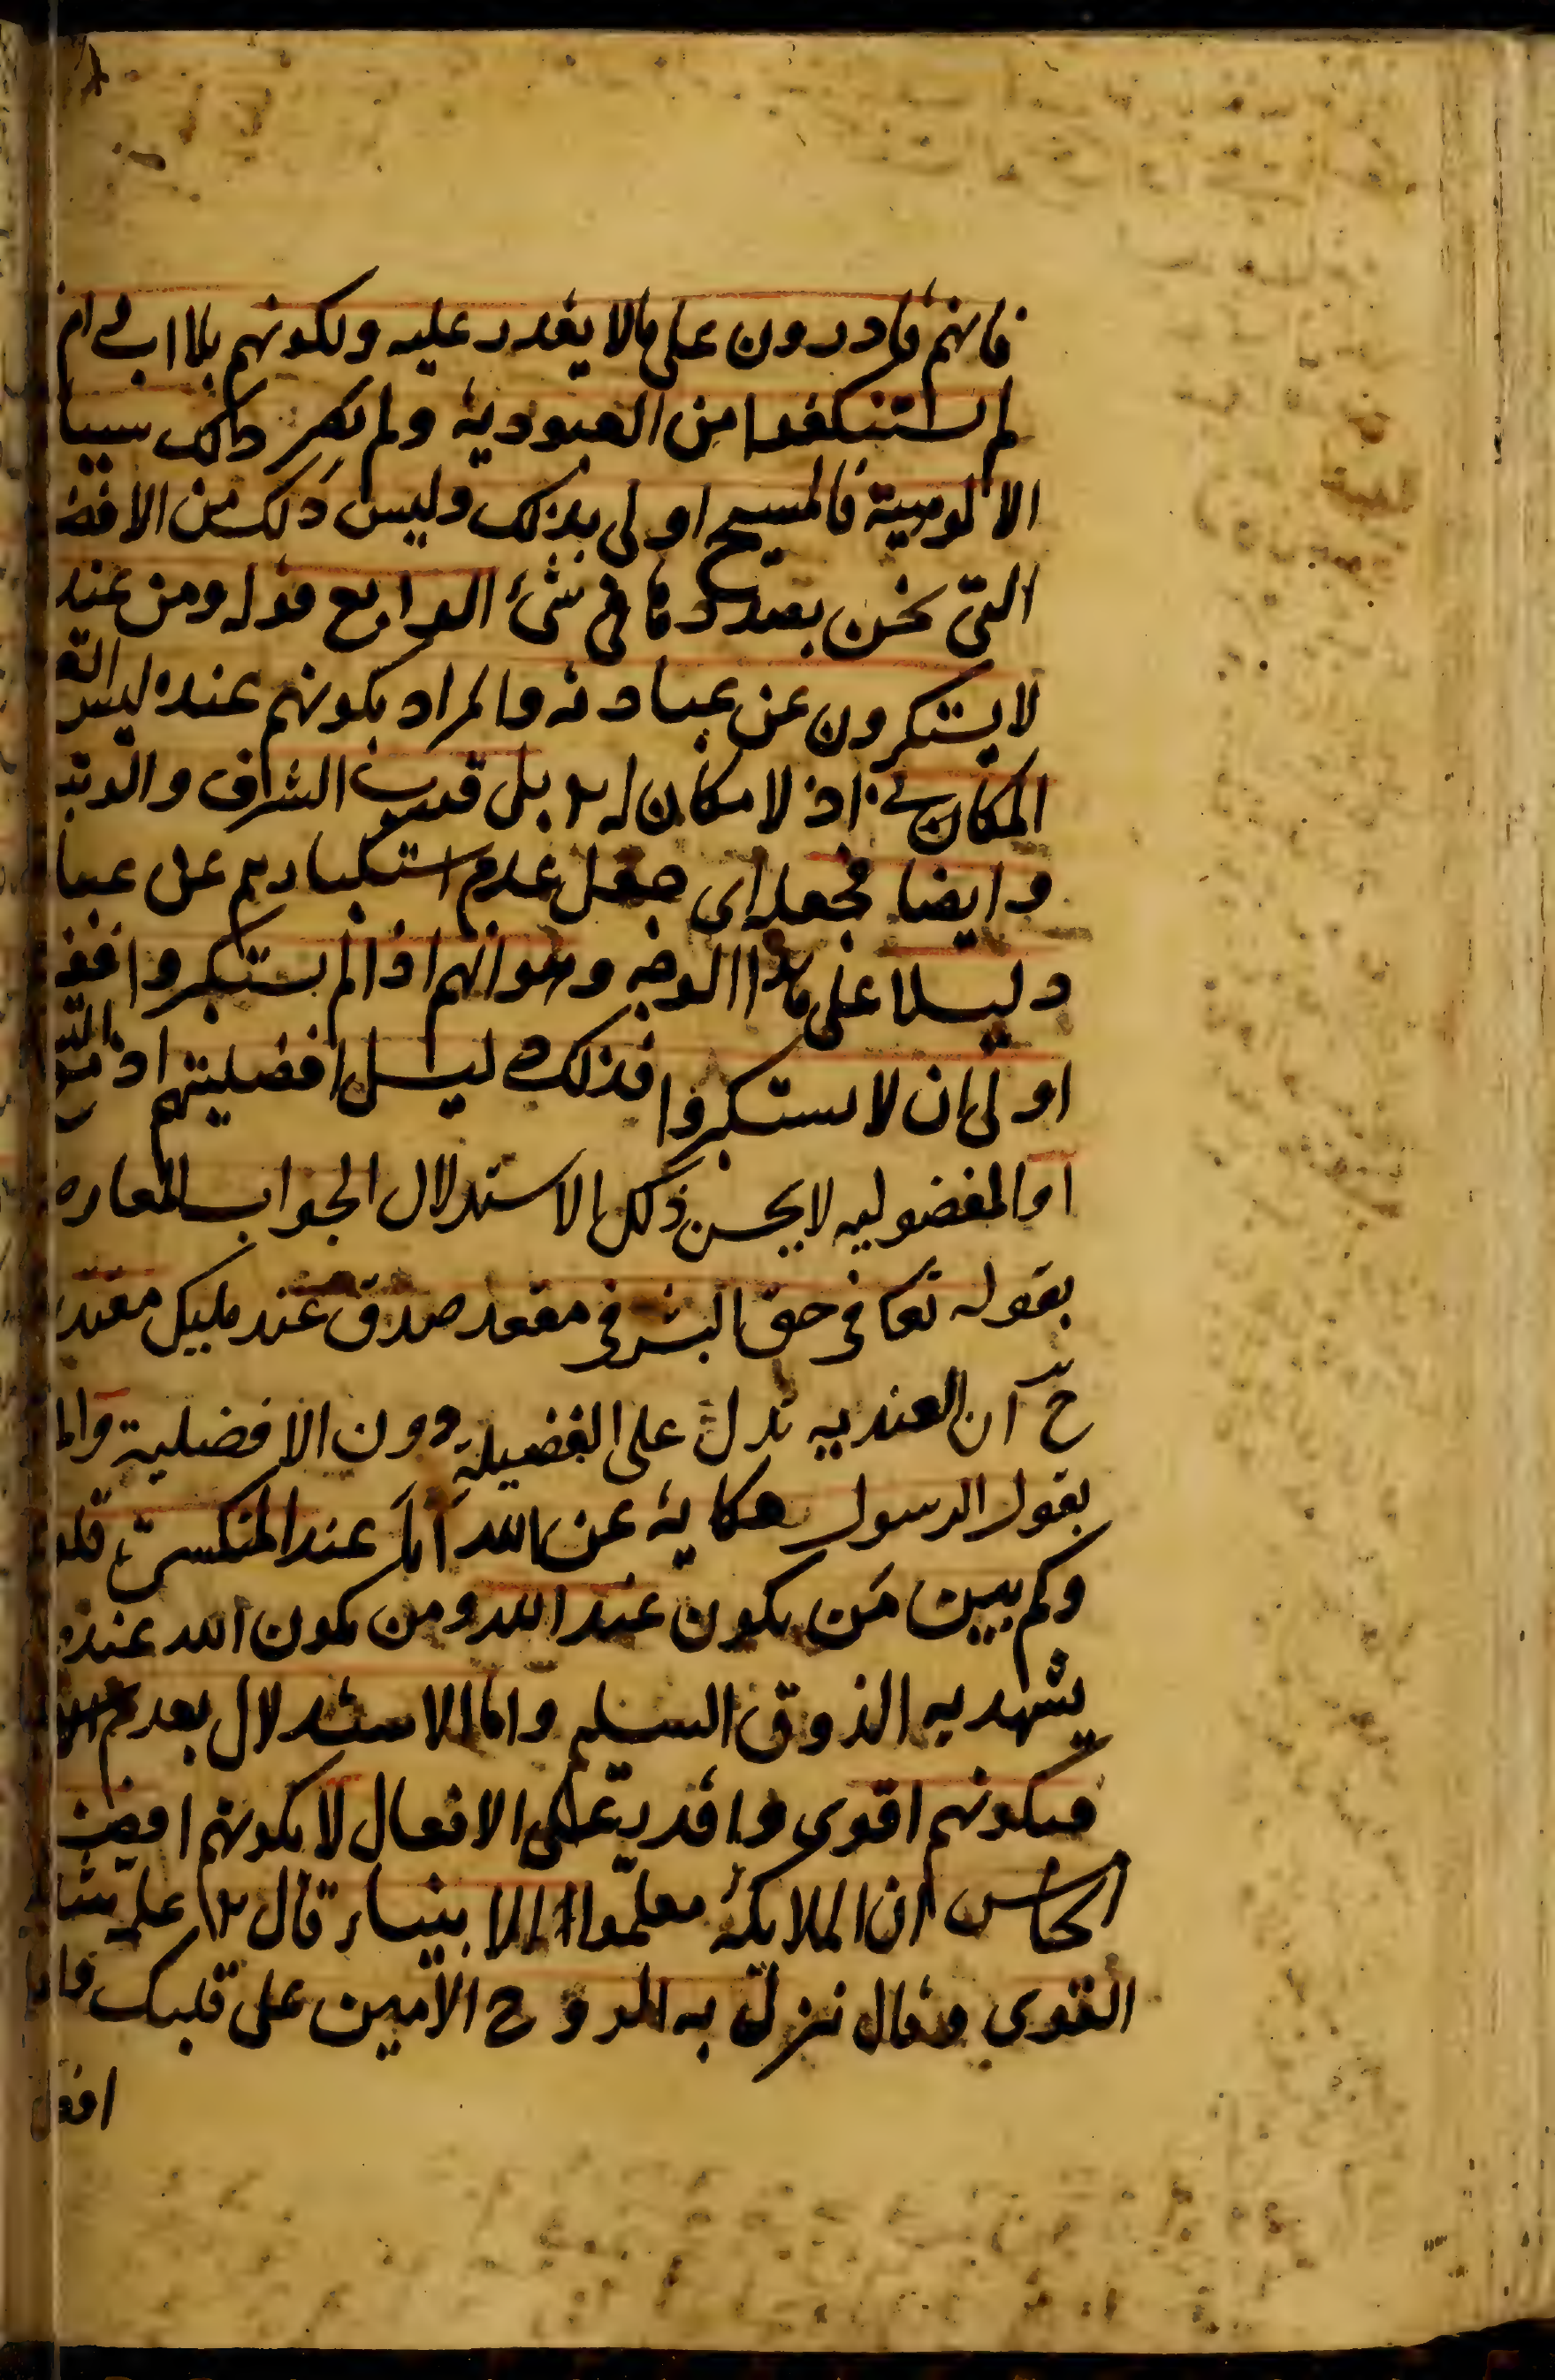 فانهم قادرون على ما لا يقدر عليه ولكونهم بلا اب ولا ام
لم يستنكفوا من العبودية ولم يصر ذلك سببا
الالوهية فالمسيح اولى بذلك وليس ذلك من الافضـ
التى نحن بصددها فى شئ الرابع قوله ومن عنده
لا يستكبرون عن عبادته والمراد بكونهم عنده ليس القر
المكانى اذ لا مكان له بل قرب الشرف والرتبة
وايضا فجعله اى جعل عدم استكبارهم عن عبا
دليلا على هذا الوجه وهو انهم اذا لم يستكبروا فغير
اولى ان لا يستكبروا فذلك دليل افضليتهم اذ مع
او المفضوليه لا يحسن ذلك الاستدلال الجواب المعارضه
بقوله تعا فى حق البشر فى مقعد صدق عند مليك مقتدر
ح ان العنديه تدل على الفضيلة دون الافضلية والمـ
بقول الرسول حكاية عن الله انا عند المنكسرة قلو
وكم بين من يكون عند الله ومن يكون الله عنده
يشهد به الذوق السليم واما الاستدلال بعدم الا
فبكونهم اقوى واقدر على الافعال لا بكونهم افضل
الخامس ان الملائكة معلموا الانبياء قال علمه شديد
القوى وقال نزل به الروح الامين على قلبك
افضل